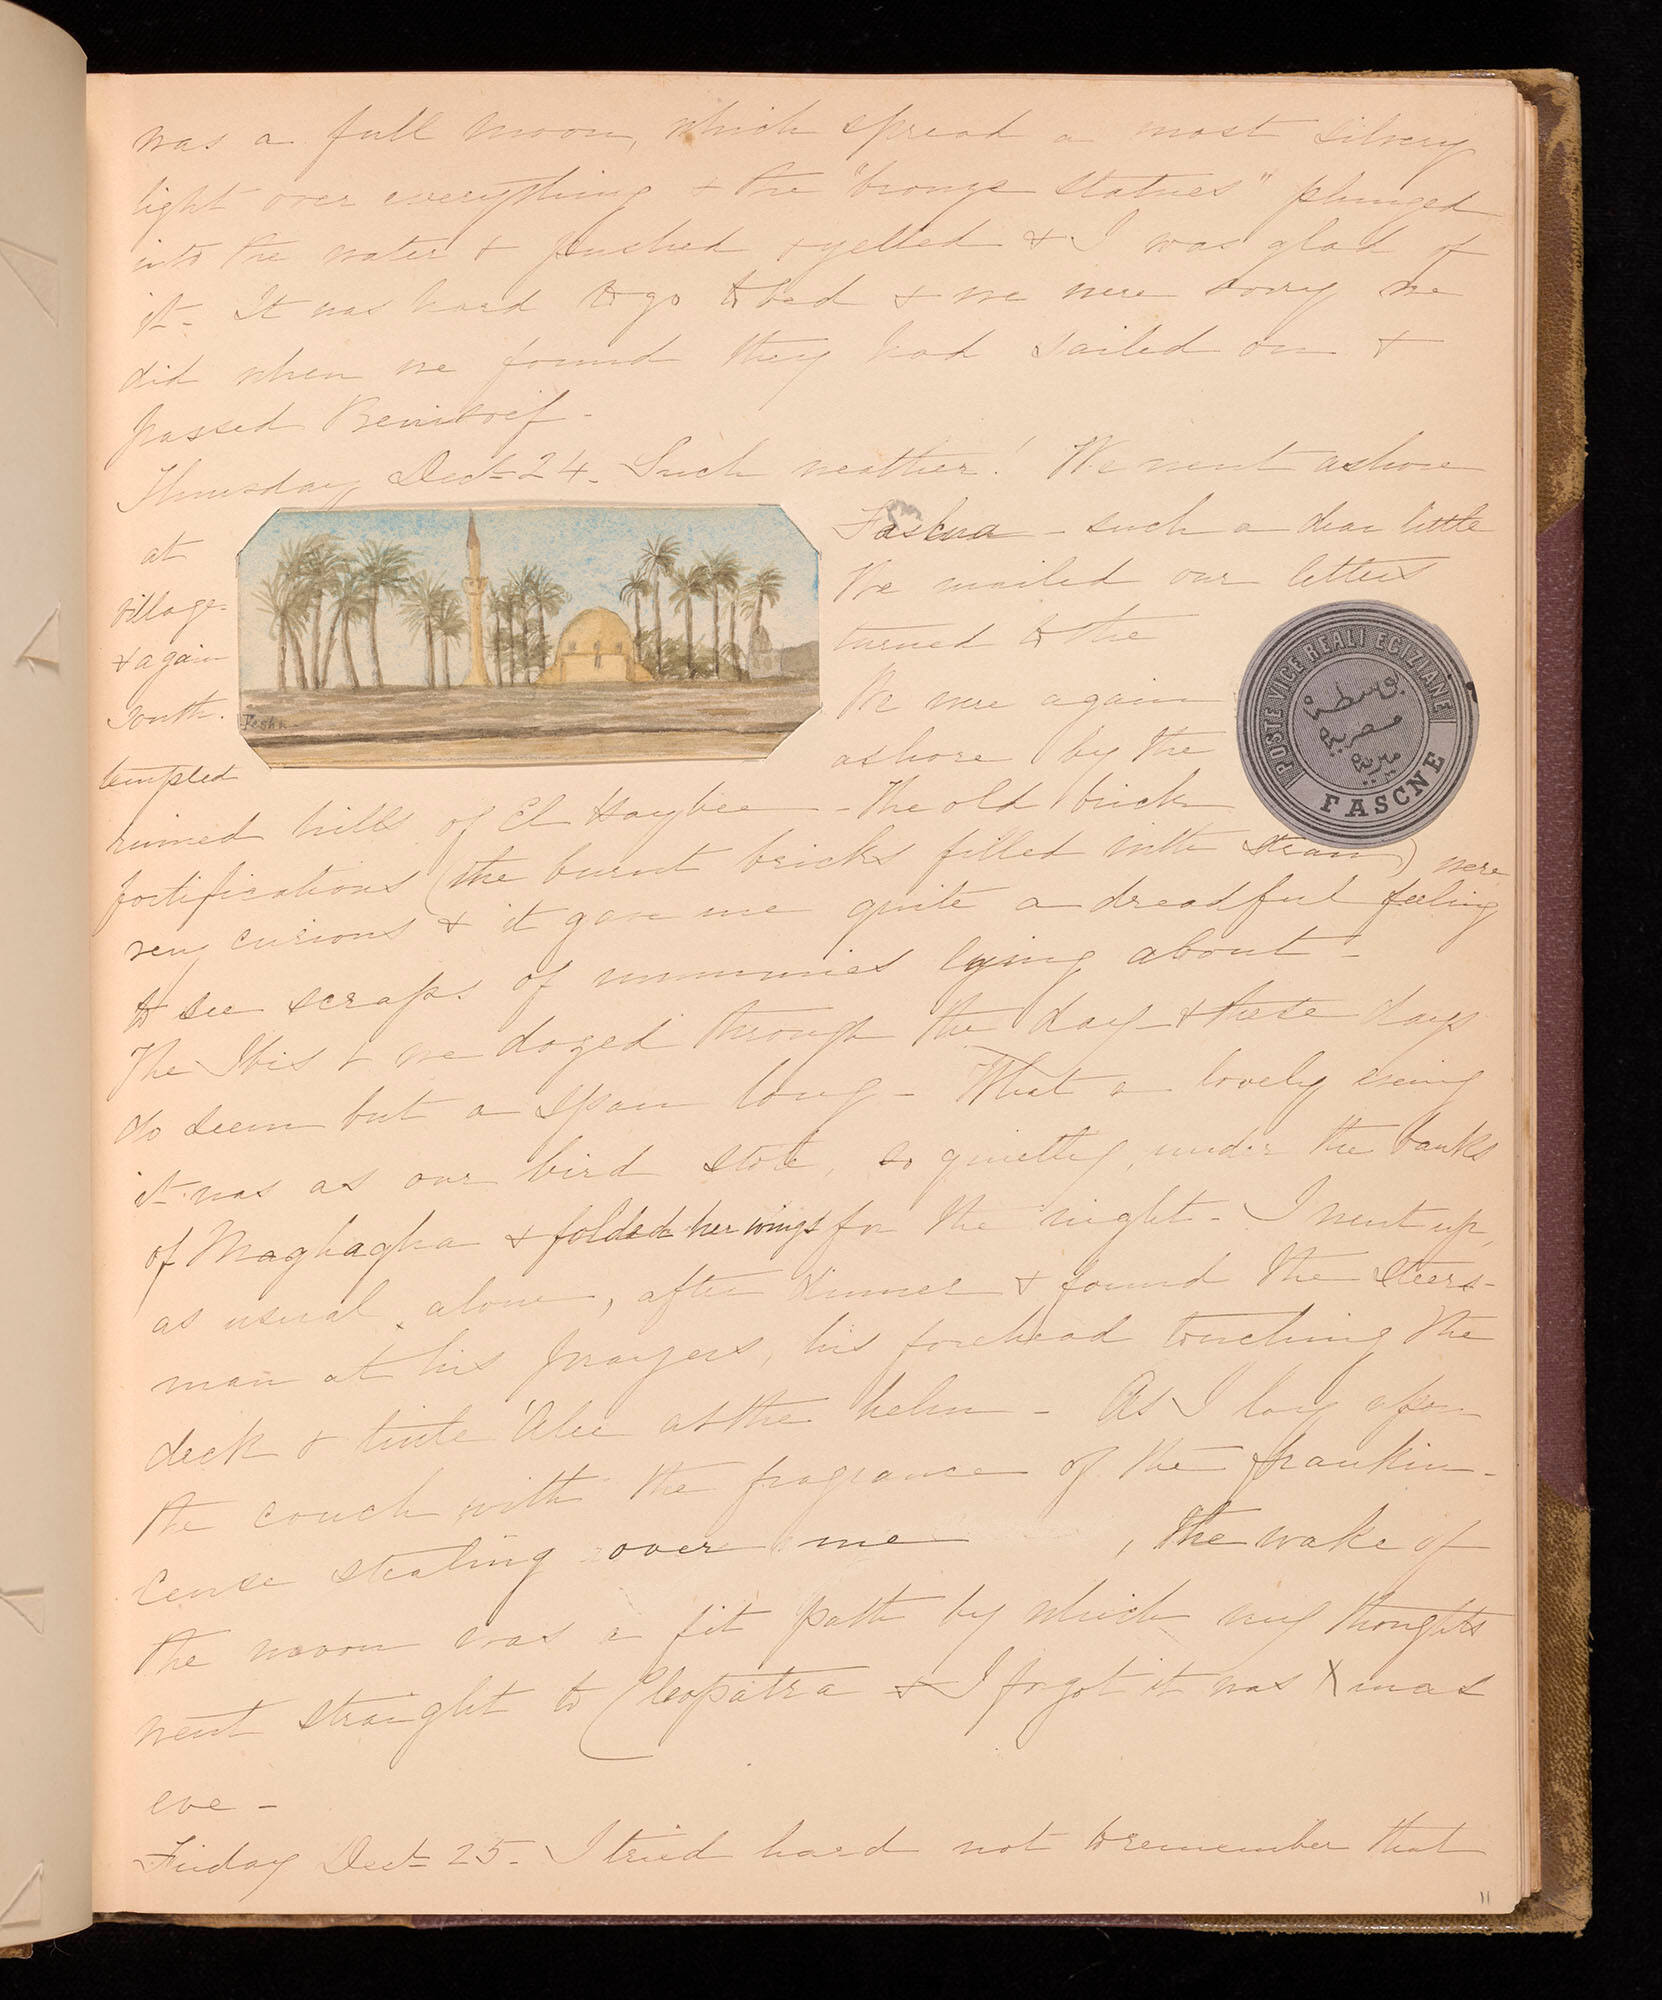 was a full moon, which spread a most silvery
light over everything & the "bronze statues" plunged
into the water & pushed & yelled & I was glad of
it - It was hard to go to bed & we were sorry we
did when we found they had sailed on &
passed Benisoeif -
Thursday Dec 24. Such weather! We went ashore
at Fashna - such a dear little
village - We mailed our letters
& again turned to the
South. We were again
tempted ashore by the
ruined hills of El Haybee - The old brick
fortifications (the burnt bricks filled with straw) were
very curious & it gave me quite a dreadful feeling
to see scraps of mummies lying about -
The Ibis & we dozed through the day - & these days
do seem but a span long - What a lovely evening
it was as our bird stole, so quietly, under the banks
of Maghagha & folded her wings for the night - I went up,
as usual, alone, after dinner & found the steers-
man at his prayers, his forehead touching the
deck & little 'Alee at the helm - As I lay upon
the couch with the fragrance of the frankin-
cense stealing over me , the wake of
the moon was a fit path by which my thoughts
went straight to Cleopatra & I forgot it was Xmas
eve -
Friday Dec 25 - I tried hard not to remember that
Feshn
POSTE VICE REALI EGIZIANE
بوسطة
مصرية
ميرية
FASCNE
11